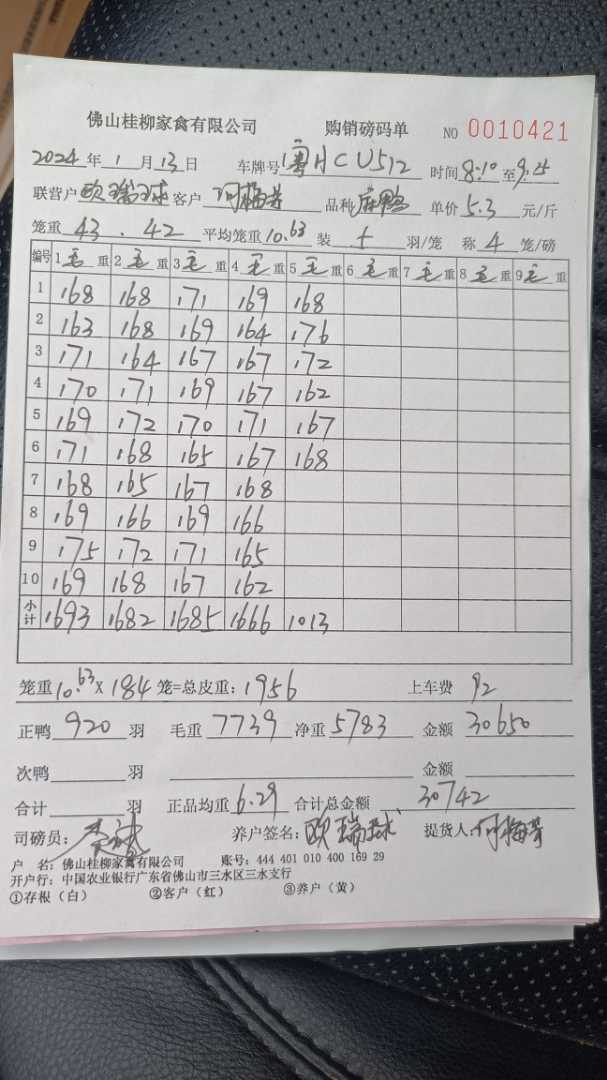 佛山桂柳家禽有限公司 购销磅码单 NO 0010421
2024 年 1 月 13 日 车牌号 粤HCU512 时间 8:10 至 9:25
联营户 欧瑞球 客户 何梅芳 品种 麻鸭 单价 5.3 元/斤
笼重 43.42 平均笼重 10.63 装 羽/笼 称 4 笼/磅
编号 1 毛 重 2 毛 重 3 毛 重 4 毛 重 5 毛 重 6 毛 重 7 毛 重 8 毛 重 9 毛 重
1 168 168 171 169 168
2 163 168 169 164 176
3 171 164 167 167 172
4 170 171 169 167 162
5 169 172 170 171 167
6 171 168 165 167 168
7 168 165 167 168
8 169 166 169 166
9 175 172 171 165
10 169 168 167 162
小计 1693 1682 1685 1666 1013
笼重 10.63 X 184 笼=总皮重: 1956 上车费 92
正鸭 920 羽 毛重 7739 净重 5783 金额 30650
次鸭 羽 金额
合计 羽 正品均重 6.29 合计总金额 30742
司磅员: 养户签名: 欧瑞球 提货人: 何梅芳
户 名: 佛山桂柳家禽有限公司 账号: 444 401 010 400 169 29
开户行: 中国农业银行广东省佛山市三水区三水支行
①存根(白) ②客户(红) ③养户(黄)